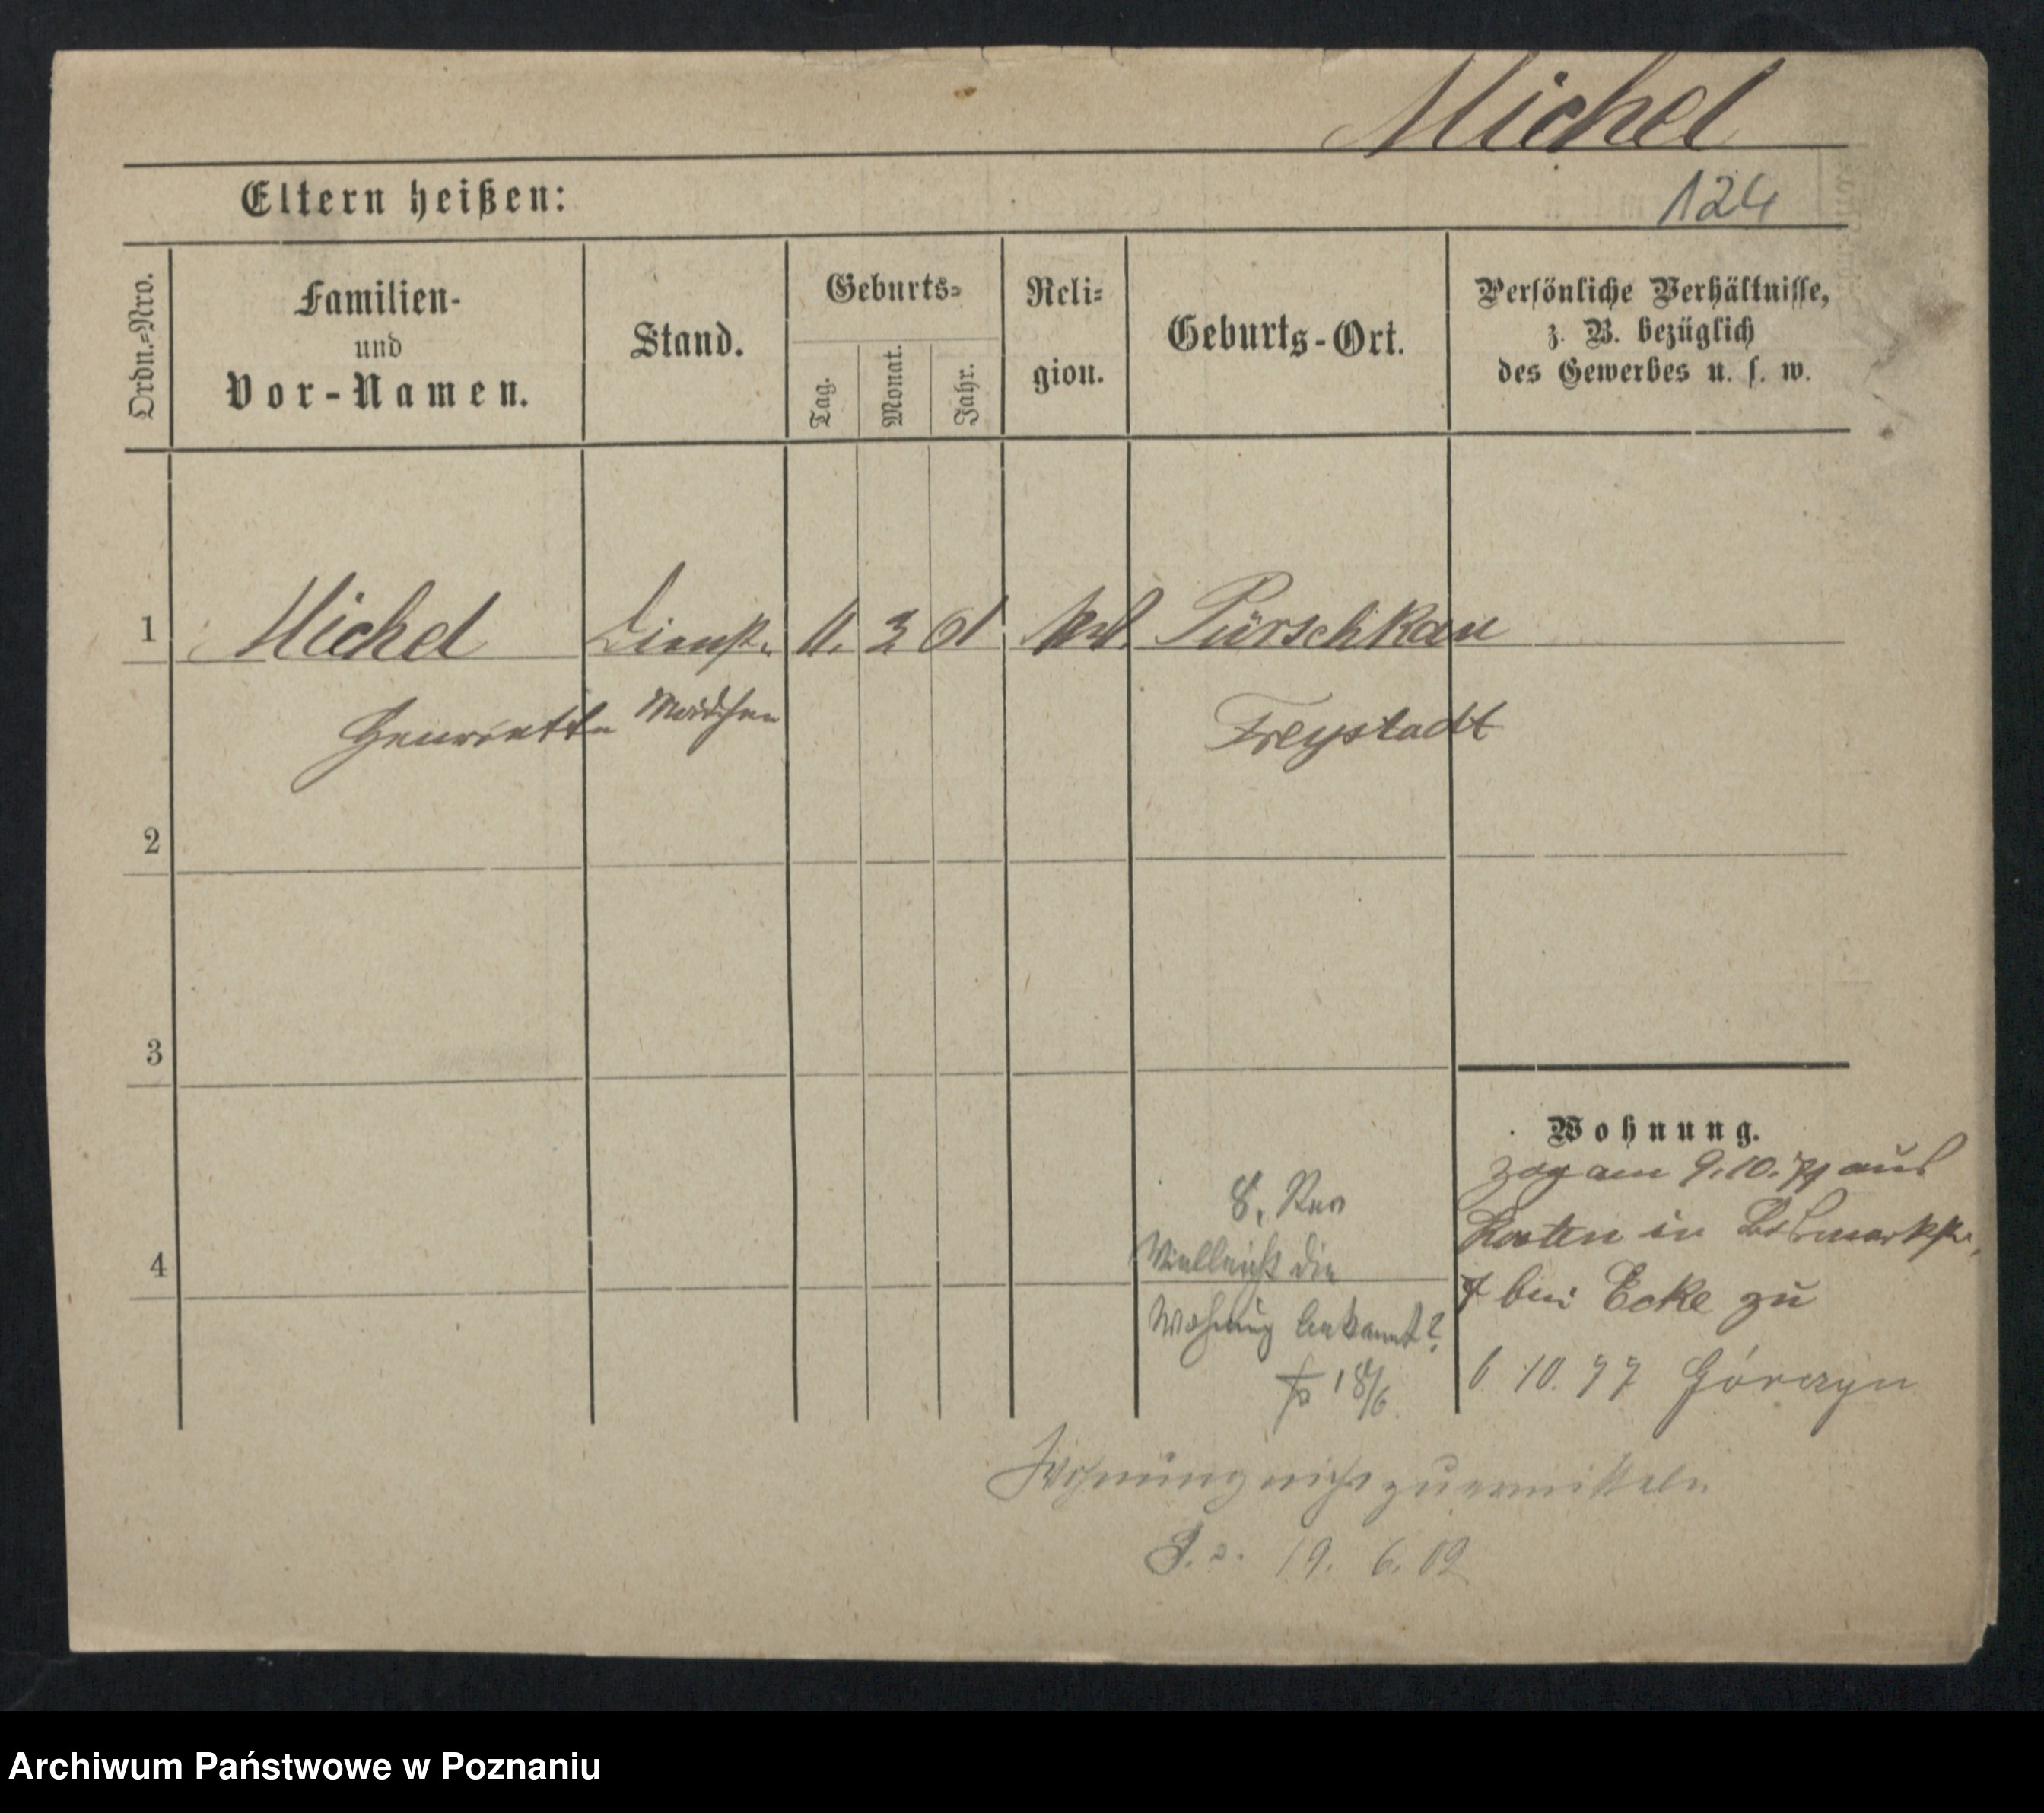 Michel
Eltern heißen:
124
Ordn.-Nro.
Familien-
und
Vor-Namen.
Stand.
Geburts-
Tag.
Monat.
Jahr.
Reli-
gion.
Geburts-Ort.
Persönliche Verhältnisse,
z. B. bezüglich
des Gewerbes u. s. w.
1 Michel Dienst- 11. 3 61 Pürschkau
Henriette Mädchen Freystadt
2
3
4
Wohnung.
zog am 9.10. aus
Kosten in Bismarckstr.
7 bei Ecke zu
6 10. 97 Górczyn
8. Rev
Vielleicht die
Wohnung bekannt?
18/6.
Wohnung nicht zu ermitteln
19. 6. 02
Archiwum Państwowe w Poznaniu